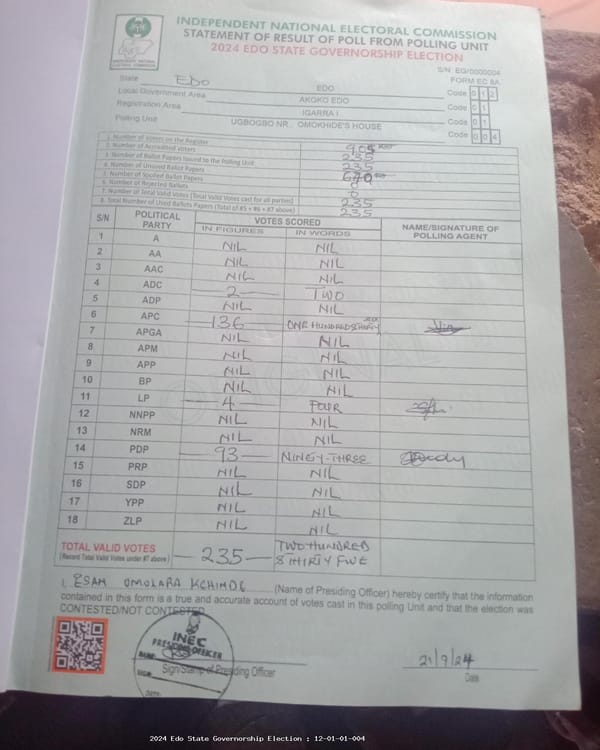 INDEPENDENT NATIONAL ELECTORAL COMMISSION
STATEMENT OF RESULT OF POLL FROM POLLING UNIT
2024 EDO STATE GOVERNORSHIP ELECTION
S/N EG/0000004
FORM EC 8A
State EDO EDO Code 0 1 2
Local Government Area AKOKO EDO Code 0 1
Registration Area IGARRA I Code 0 1
Polling Unit UGBOGBO NR.. OMOKHIDE'S HOUSE Code 0 0 4
1. Number of Voters on the Register 905
2. Number of Accredited Voters 235
3. Number of Ballot Papers Issued to the Polling Unit 235
4. Number of Unused Ballot Papers 670
5. Number of Spoiled Ballot Papers 0
6. Number of Rejected Ballots 0
7. Number of Total Valid Votes (Total Valid Votes cast for all parties) 235
8. Total Number of Used Ballots Papers (Total of #5 + #6 + #7 above) 235
S/N POLITICAL PARTY VOTES SCORED NAME/SIGNATURE OF POLLING AGENT
IN FIGURES IN WORDS
1 A NIL NIL
2 AA NIL NIL
3 AAC NIL NIL
4 ADC 2 TWO
5 ADP NIL NIL
6 APC 136 ONE HUNDRED & THIRTY SIX
7 APGA NIL NIL
8 APM NIL NIL
9 APP NIL NIL
10 BP NIL NIL
11 LP 4 FOUR
12 NNPP NIL NIL
13 NRM NIL NIL
14 PDP 93 NINETY-THREE
15 PRP NIL NIL
16 SDP NIL NIL
17 YPP NIL NIL
18 ZLP NIL NIL
TOTAL VALID VOTES 235 TWO HUNDRED
(Record Total Valid Votes under #7 above) & THIRTY FIVE
I, ESAH OMOLARA (Name of Presiding Officer) hereby certify that the information
contained in this form is a true and accurate account of votes cast in this polling Unit and that the election was
CONTESTED/NOT CONTESTED
INEC
PRESIDING OFFICER
NAME:
SIGN:
DATE:
Sign/Stamp of Presiding Officer
21/9/24
Date
2024 Edo State Governorship Election : 12-01-01-004